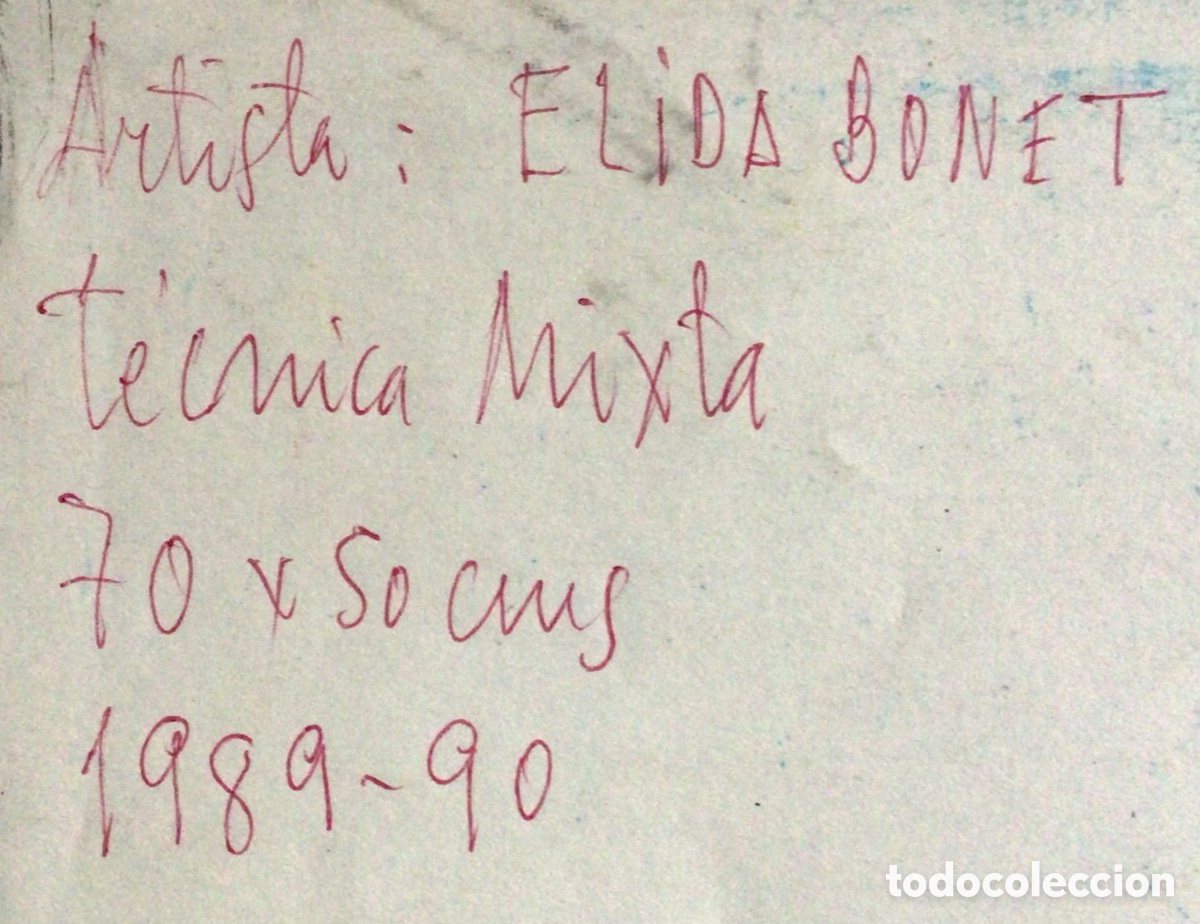 Artista: ELiDA BONET
técnica Mixta
70 x 50 cms
1989-90
todocoleccion